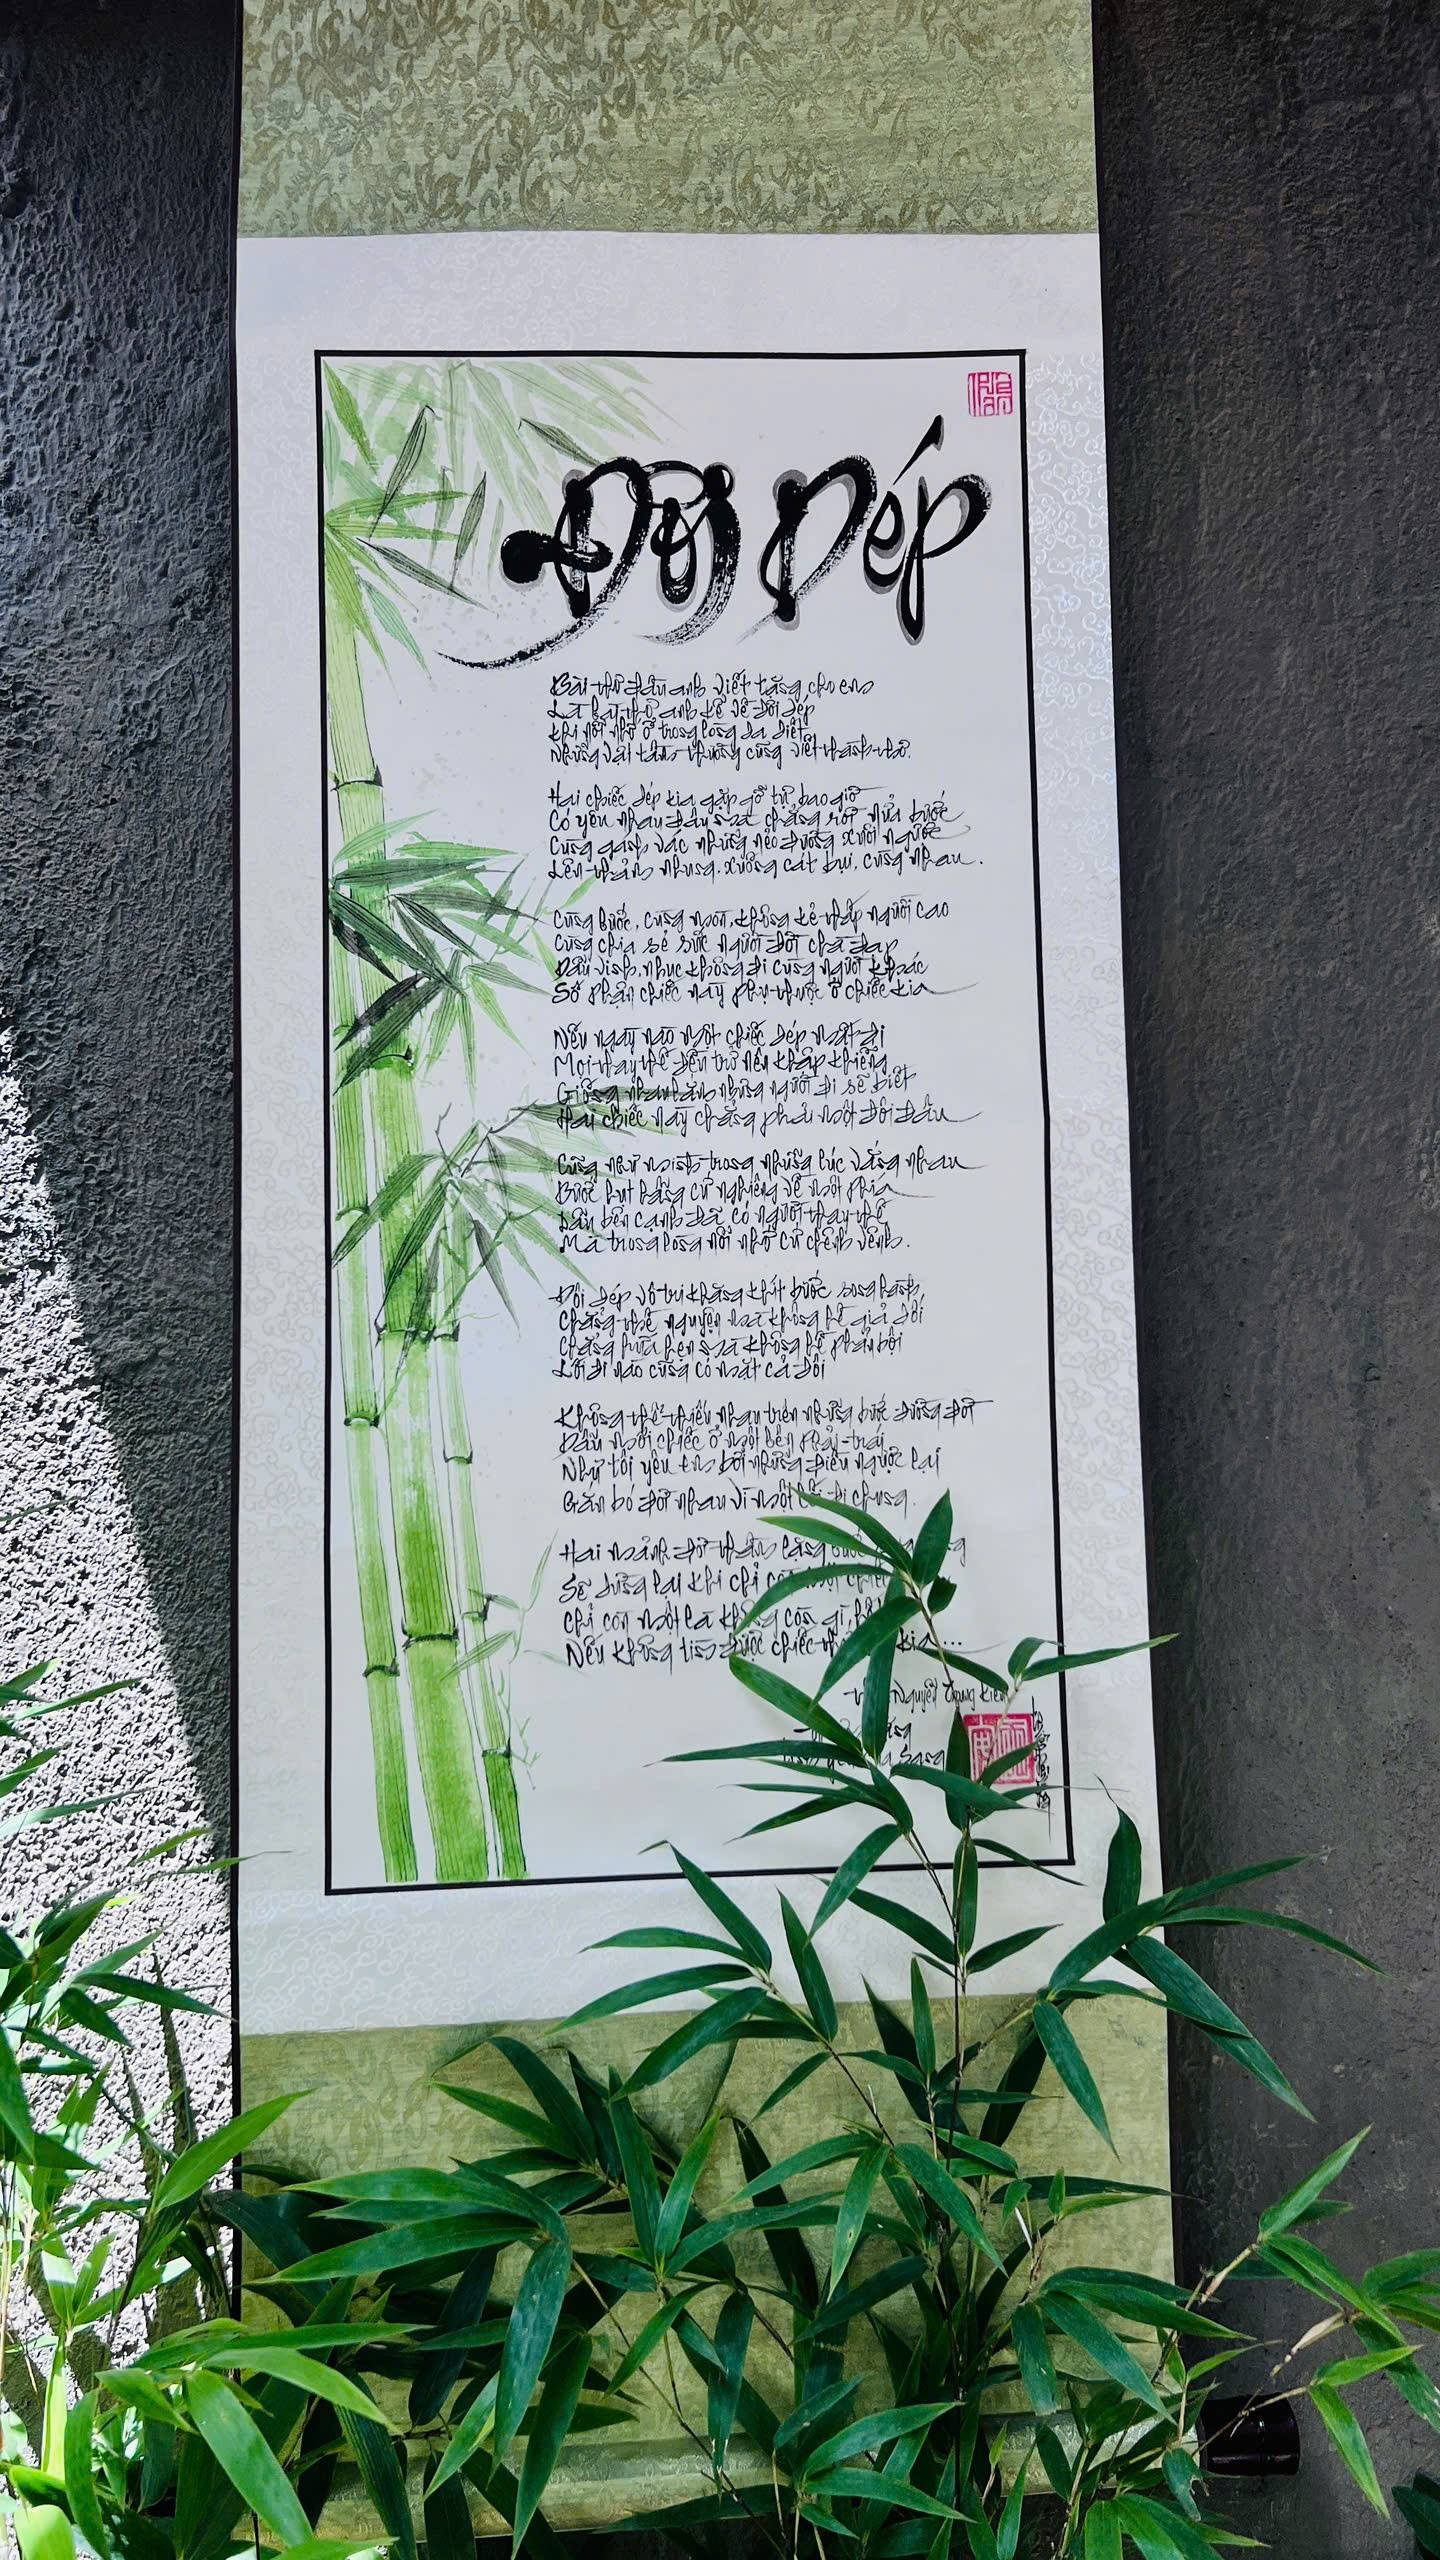 Đôi Dép
Bài thơ đầu anh viết tặng cho em
Là bài thơ anh kể về đôi dép
Khi nỗi nhớ ở trong lòng da diết
Những vật tầm thường cũng viết thành thơ.
Hai chiếc dép kia gặp gỡ tự bao giờ
Có yêu nhau đâu mà chẳng rời nửa bước
Cùng gánh vác những nẻo đường xuôi ngược
Lên thảm nhung, xuống cát bụi, cùng nhau.
Cùng bước, cùng mòn, không kẻ thấp người cao
Cùng chia sẻ sức người đời chà đạp
Dẫu vinh, nhục không đi cùng người khác
Số phận chiếc này phụ thuộc ở chiếc kia
Nếu ngày nào một chiếc dép mất đi
Mọi thay thế đều trở nên khập khiễng
Giống nhau lắm nhưng người đi sẽ biết
Hai chiếc này chẳng phải một đôi đâu
Cũng như mình trong những lúc vắng nhau
Bước hụt hẫng cứ nghiêng về một phía
Dẫu bên cạnh đã có người thay thế
Mà trong lòng nỗi nhớ cứ chênh vênh.
Đôi dép vô tri khăng khít bước song hành
Chẳng thề nguyện mà không hề giả dối
Chẳng hứa hẹn mà không hề phản bội
Lối đi nào cũng có mặt cả đôi
Không thể thiếu nhau trên những bước đường đời
Dẫu mỗi chiếc ở một bên phải-trái
Như tôi yêu em bởi những điều ngược lại
Gắn bó đời nhau vì một lối đi chung.
Hai mảnh đời thầm lặng bước
Sẽ dừng lại khi chỉ còn một chiếc
Chỉ còn một là không còn gì
Nếu không tìm được chiếc kia...
Nguyễn Trung Kiên